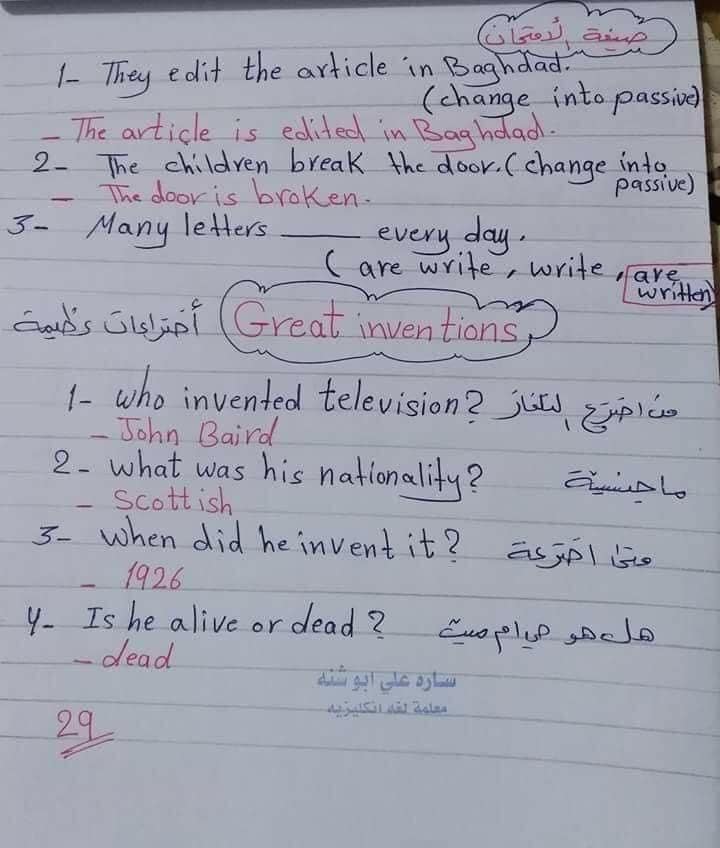 صيغة الأمتحان
1- They edit the article in Baghdad.
(change into passive)
- The article is edited in Baghdad.
2- The children break the door. (change into passive)
- The door is broken.
3- Many letters ____ every day.
( are write , write , are written)
أختراعات عظيمة Great inventions
1- who invented television? من اخترع التلفاز
- John Baird
2- what was his nationality? ما جنسيتة
- Scottish
3- when did he invent it? متى اخترعة
- 1926
4- Is he alive or dead? هل هو حي ام ميت
- dead
ساره علي ابو شنه
معلمة لغه انكليزيه
29